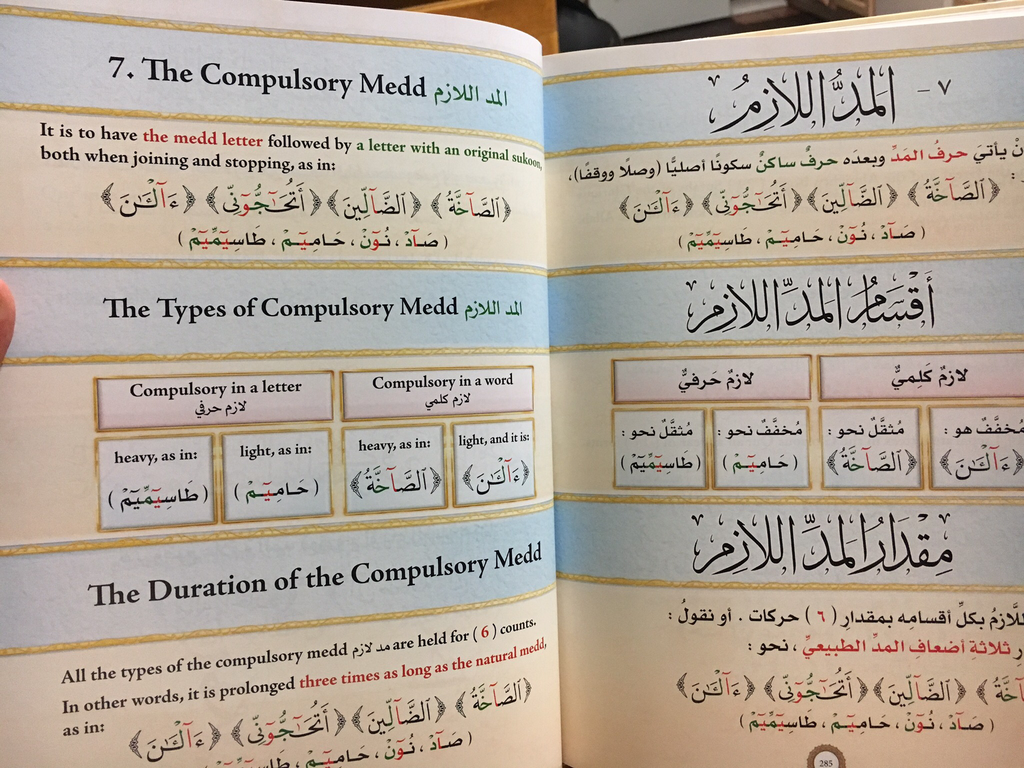 7. The Compulsory Medd المد اللازم
It is to have the medd letter followed by a letter with an original sukoon,
both when joining and stopping, as in:
﴿ٱلصَّآخَّةُ﴾ ﴿ٱلضَّآلِّينَ﴾ ﴿أَتُحَـٰٓجُّوٓنِّى﴾ ﴿ءَآلْـَٔـٰنَ﴾
( صَـآدْ ، نُـوٓنْ ، حَـامِيٓـمْ ، طَاسِيٓمِّيٓمْ )
The Types of Compulsory Medd المد اللازم
Compulsory in a letter
لازم حرفي
Compulsory in a word
لازم كلمي
heavy, as in:
( طَاسِيٓمِّيٓمْ )
light, as in:
( حَـامِيٓـمْ )
heavy, as in:
﴿ٱلصَّآخَّةُ﴾
light, and it is:
﴿ءَآلْـَٔـٰنَ﴾
The Duration of the Compulsory Medd
All the types of the compulsory medd مد لازم are held for ( 6 ) counts.
In other words, it is prolonged three times as long as the natural medd,
as in:
﴿ٱلصَّآخَّةُ﴾ ﴿ٱلضَّآلِّينَ﴾ ﴿أَتُحَـٰٓجُّوٓنِّى﴾ ﴿ءَآلْـَٔـٰنَ﴾
( صَـآدْ ، نُـوٓنْ ، حَـامِيٓـمْ ، طَاسِيٓمِّيٓمْ )
٧ - المَدُّ اللازِمُ
يأتيَ حرفُ المَدِّ وبعدَه حرفٌ ساكنٌ سكونًا أصليًّا (وصلًا ووقفًا)،
﴿ٱلصَّآخَّةُ﴾ ﴿ٱلضَّآلِّينَ﴾ ﴿أَتُحَـٰٓجُّوٓنِّى﴾ ﴿ءَآلْـَٔـٰنَ﴾
( صَـآدْ ، نُـوٓنْ ، حَـامِيٓـمْ ، طَاسِيٓمِّيٓمْ )
أَقْسَامُ المَدِّ اللازِمِ
لازمٌ كَلِميٌّ
لازمٌ حَرفيٌّ
مُخفَّفٌ هو :
﴿ءَآلْـَٔـٰنَ﴾
مُثقَّلٌ نحو :
﴿ٱلصَّآخَّةُ﴾
مُخفَّفٌ نحو :
( حَـامِيٓـمْ )
مُثقَّلٌ نحو :
( طَاسِيٓمِّيٓمْ )
مِقدَارُ المَدِّ اللازمِ
اللَّازمُ بكلِّ أقسامِه بمقدارِ ( ٦ ) حركات . أو نقولُ :
ثلاثةِ أضعافِ المدِّ الطبيعيِّ ، نحو :
﴿ٱلضَّآلِّينَ﴾ ﴿أَتُحَـٰٓجُّوٓنِّى﴾ ﴿ءَآلْـَٔـٰنَ﴾
( صَـآدْ ، نُـوٓنْ ، حَـامِيٓـمْ ، طَاسِيٓمِّيٓمْ )
285